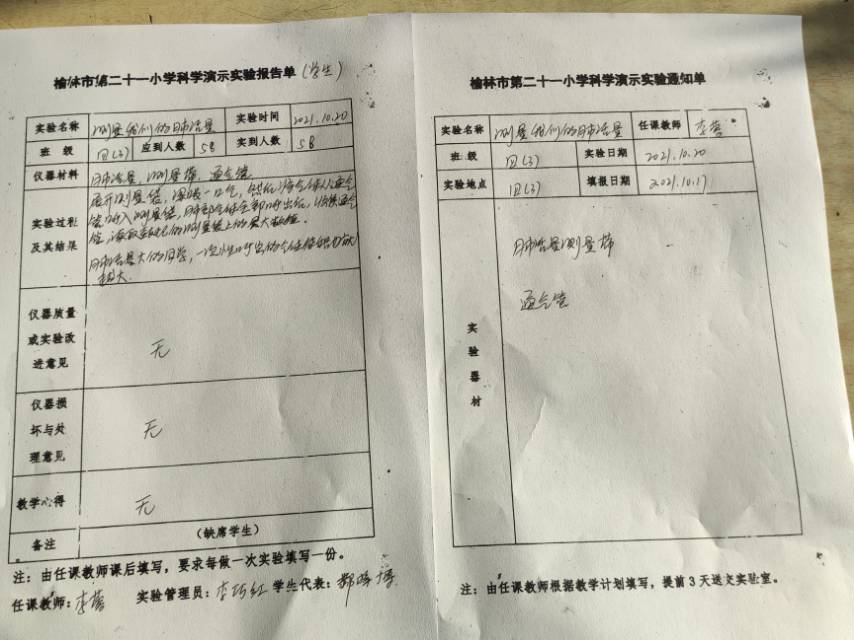 榆林市第二十一小学科学演示实验报告单(学生)
实验名称 测量我们的肺活量 实验时间 2021.10.20
班 级 四(3) 应到人数 58 实到人数 58
仪器材料 肺活量,测量带,通气管
实验过程及其结果
展开测量袋,深吸一口气,
测量袋,肺部气体全部呼出后,
管,读取
测量袋上的最大数值。
肺活量大的同学,一次性呼出的气体
越大.
仪器质量或实验改进意见 无
仪器损坏与处理意见 无
教学心得 无
备注 (缺席学生)
注:由任课教师课后填写,要求每做一次实验填写一份。
任课教师:李蓉 实验管理员:李巧红 学生代表:
榆林市第二十一小学科学演示实验通知单
实验名称 测量我们的肺活量 任课教师 李蓉
班 级 四(3) 实验日期 2021.10.20
实验地点 四(3) 填报日期 2021.10.17
实验器材
肺活量测量带
通气管
注:由任课教师根据教学计划填写,提前3天送交实验室。